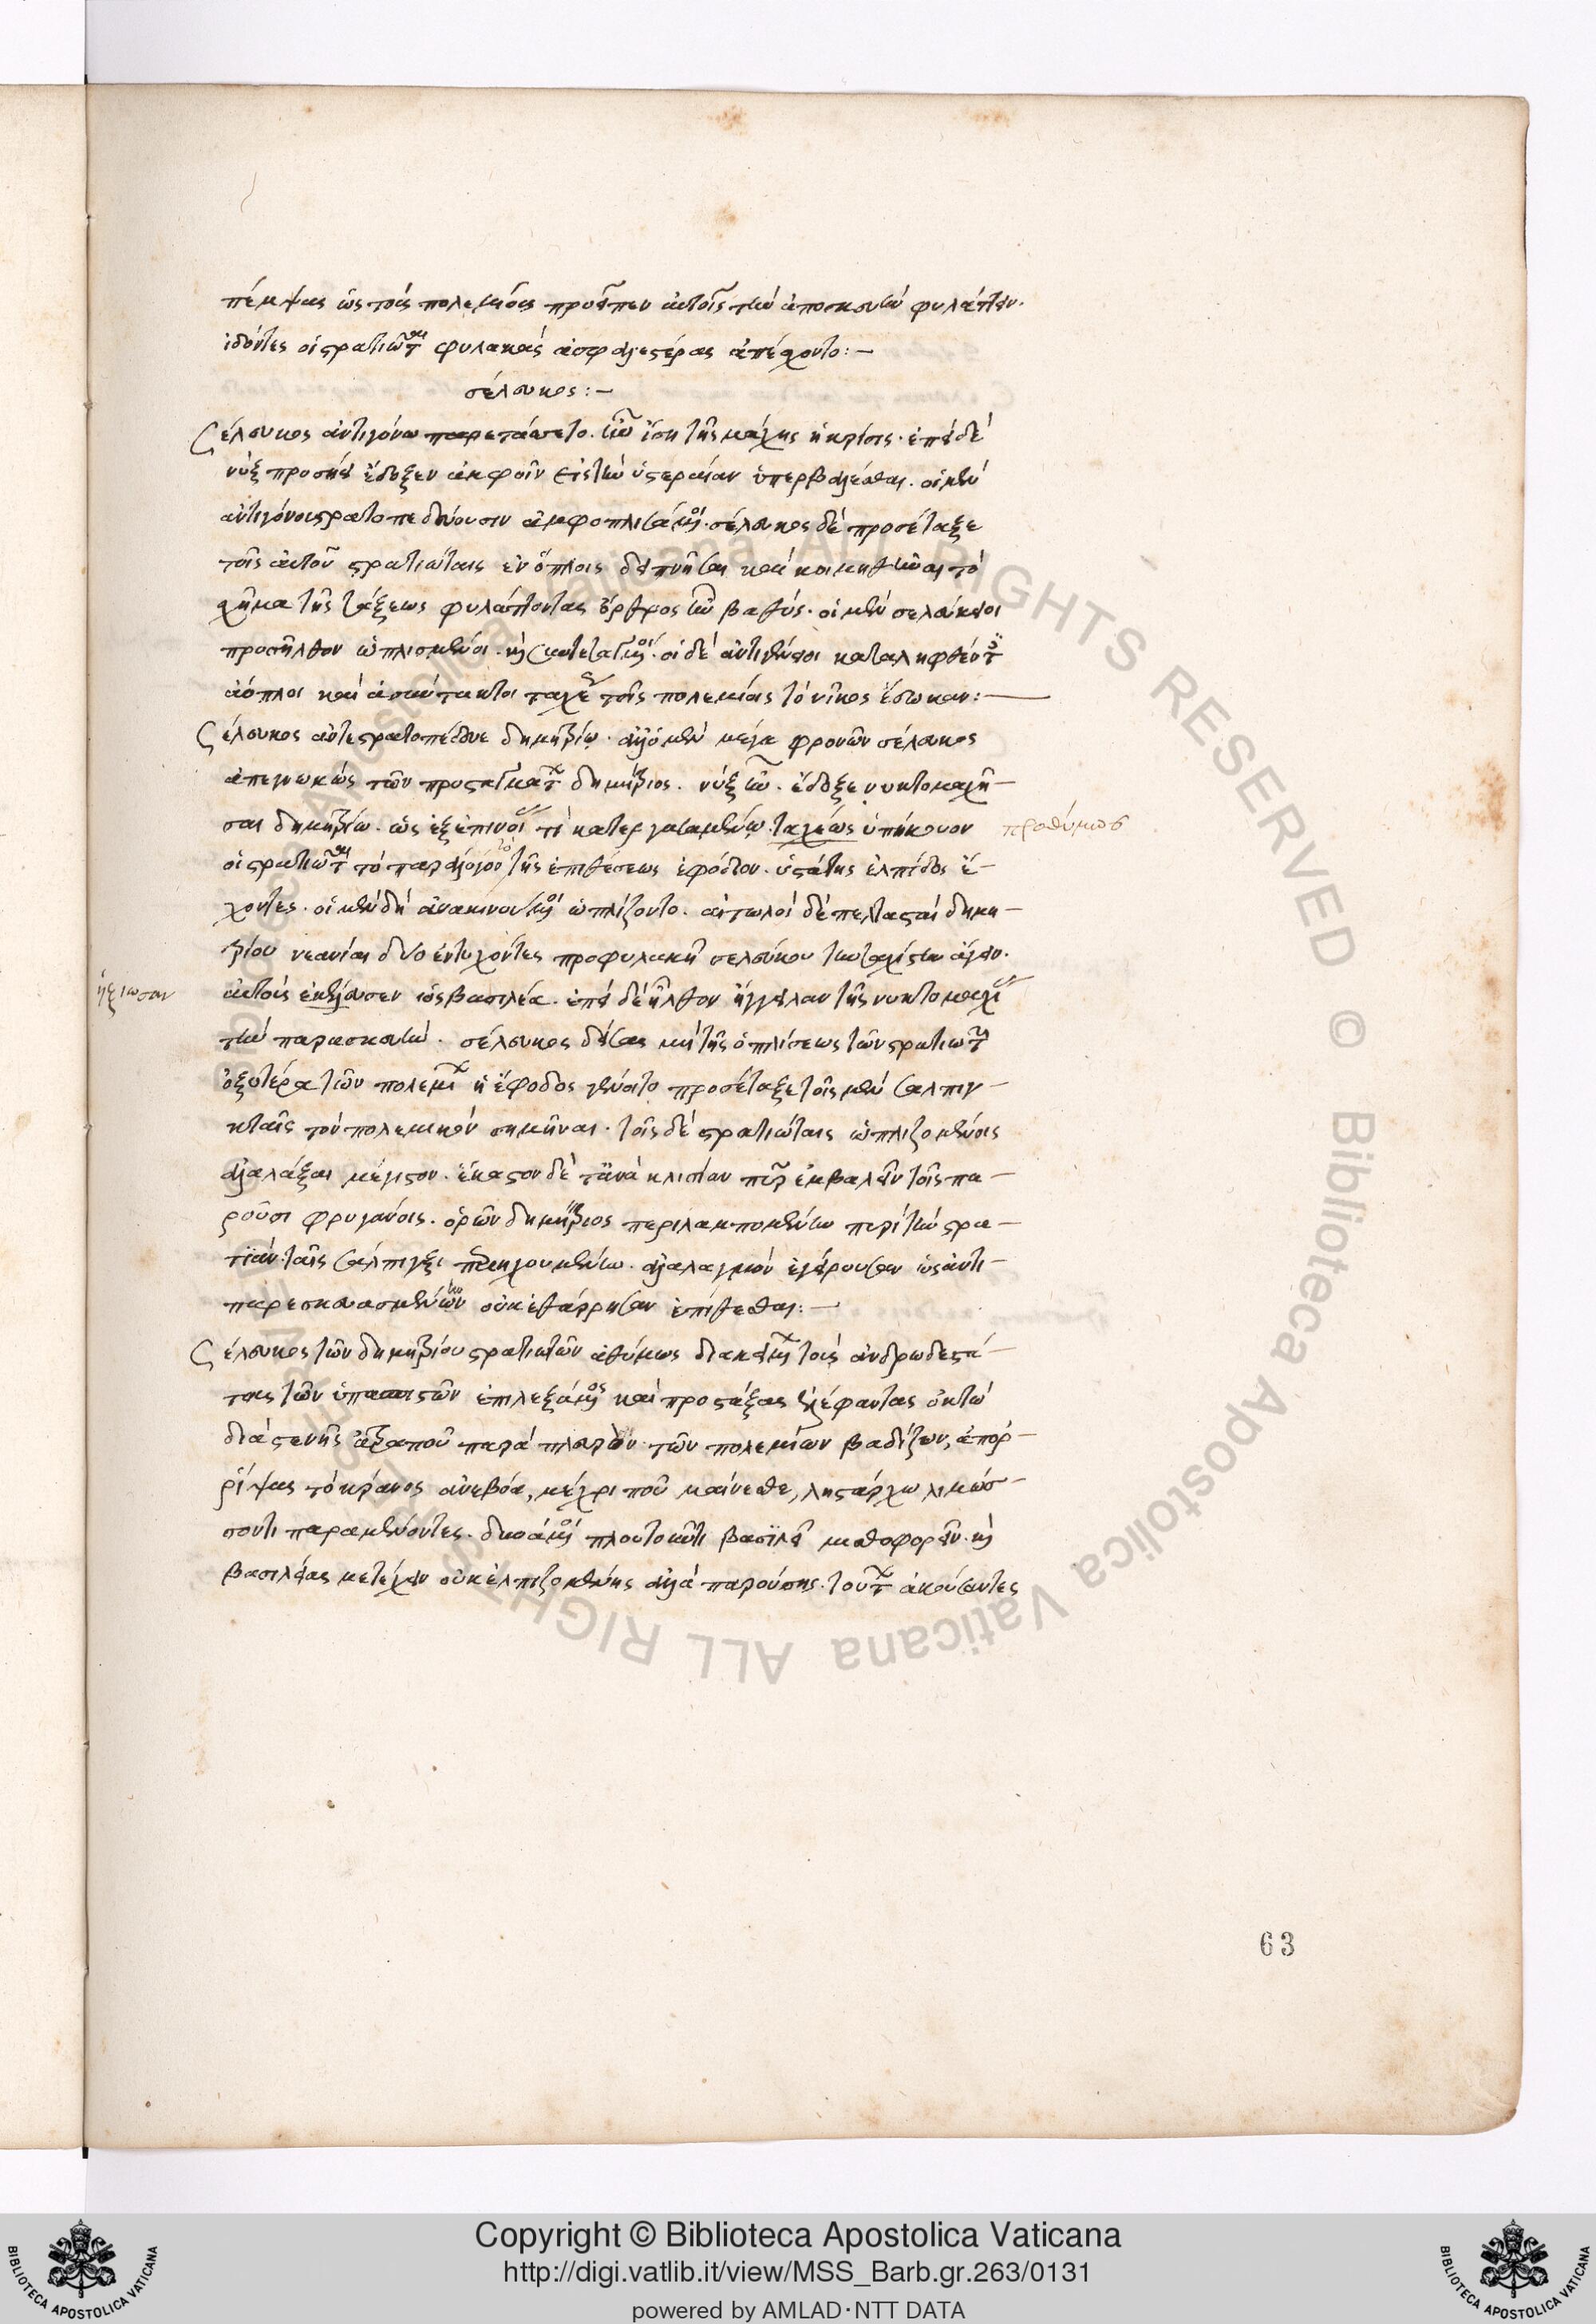 πέμψας ὡς τοῖς πολεμίοις προεῖπεν αὐτοῖς τὴν ἀποσκευὴν φυλάττειν.
ἰδόντες οἱ στρατιῶται φυλακὰς ἀσφαλεστέρας ἀπέχοντο:—
σέλευκος:—
Σέλευκος ἀντιγόνω παρετάσσετο. ἦν ἴση τῆς μάχης ἡ κρίσις. ἐπεὶ δὲ
νὺξ προσήει ἔδοξεν ἀμφοῖν εἰς τὴν ὑστεραίαν ὑπερβαλέσθαι. οἱ μὲν
ἀντιγόνου στρατοπεδεύουσιν ἀφοπλισάμενοι. σέλευκος δὲ προσέταξε
τοῖς αὐτοῦ στρατιώταις ἐν ὅπλοις δειπνῆσαι καὶ κοιμηθῆναι τὸ
σχῆμα τῆς τάξεως φυλάττοντας ὄρθρος ἦν βαθύς. οἱ μὲν σελεύκειοι
προσῆλθον ὡπλισμένοι. καὶ συντεταγμένοι. οἱ δὲ ἀντιγόνειοι καταληφθέντες
ἄοπλοι καὶ ἀσύντακτοι ταχεῖαν τοῖς πολεμίοις τὸ νῖκος ἔδωκαν:—
Σέλευκος ἀντεστρατοπέδευε δημητρίῳ. ἀλλ' ὁ μὲν μέγα φρονῶν σέλευκος
ἀπεγνωκὼς τῶν προσταγμάτων δημήτριος. νὺξ ἦν. ἔδοξε νυκτομαχῆ-
σαι δημητρίω. ὡς ἐξεπίνοιαν τι κατεργασαμένῳ. ταχέως ὑπήκουον
προθύμωσ
οἱ στρατιῶται τὸ παράλογον τῆς ἐπιθέσεως ἐφόδιον. ὑστάτης ἐλπίδος ἔ-
χοντες. οἱ μὲν δὴ ἀνακινούμενοι ὡπλίζοντο. αἰτωλοὶ δὲ πελτασταὶ δημη-
τρίου νεανίαι δύο ἐντυχόντες προφυλακῇ σελεύκου τὴν ταχίστην ἄγειν.
ἠξίωσαν
αὐτοὺς ἐκέλευσεν ὡς βασιλέα. ἐπεὶ δὲ ἦλθον ἤγγειλαν τῆς νυκτομαχίας
τὴν παρασκευήν. σέλευκος δείσας μὴ τῆς ὁπλίσεως τῶν στρατιωτῶν
ὀξυτέρα τῶν πολεμίων ἡ ἔφοδος γένοιτο προσέταξε τοῖς μὲν σαλπιγ-
κταῖς τὸν πολεμικὸν σημῆναι. τοῖς δὲ στρατιώταις ὡπλιζομένοις
ἀλαλάξαι μέγιστον. ἕκαστον δὲ τἀνὰ κλισίαν πῦρ ἐμβαλεῖν τοῖς πα-
ροῦσι φρυγάνοις. ὁρῶν δημήτριος περιλαμπομένην περὶ τὴν στρα-
τιὰν. ταῖς σάλπιγξι περιηχουμένην. ἀλαλαγμὸν ἐγείρουσαν ὡς ἀντι-
παρεσκευασμένων οὐκ ἐθάρρησαν ἐπιθέσθαι:—
Σέλευκος τῶν δημητρίου στρατιωτῶν ἀθύμως διακειμένων τοὺς ἀνδρωδεστά-
τους τῶν ὑπασπιστῶν ἐπιλεξάμενος καὶ προστάξας ἐλέφαντας ὀκτὼ
διὰ στενῆς ἀτραποῦ παρὰ πλευρὸν τῶν πολεμίων βαδίζων, ἀπορ-
ρίψας τὸ κράνος ἀνεβόα, μέχρι ποῦ μαίνεσθε, λῃστάρχω λιμώσ-
σοντι παραμένοντες. δυνάμενοι πλουτοῦντι βασιλεῖ μισθοφορεῖν. καὶ
βασιλείας μετέχειν οὐκ ἐλπιζομένης ἀλλὰ παρούσης. τούτων ἀκούσαντες
63
Copyright © Biblioteca Apostolica Vaticana
http://digi.vatlib.it/view/MSS_Barb.gr.263/0131
powered by AMLAD·NTT DATA